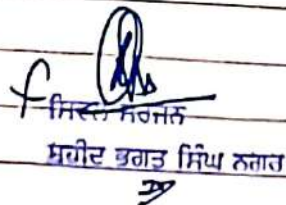 ਸਿਵਲ ਸਰਜਨ
ਸ਼ਹੀਦ ਭਗਤ ਸਿੰਘ ਨਗਰ